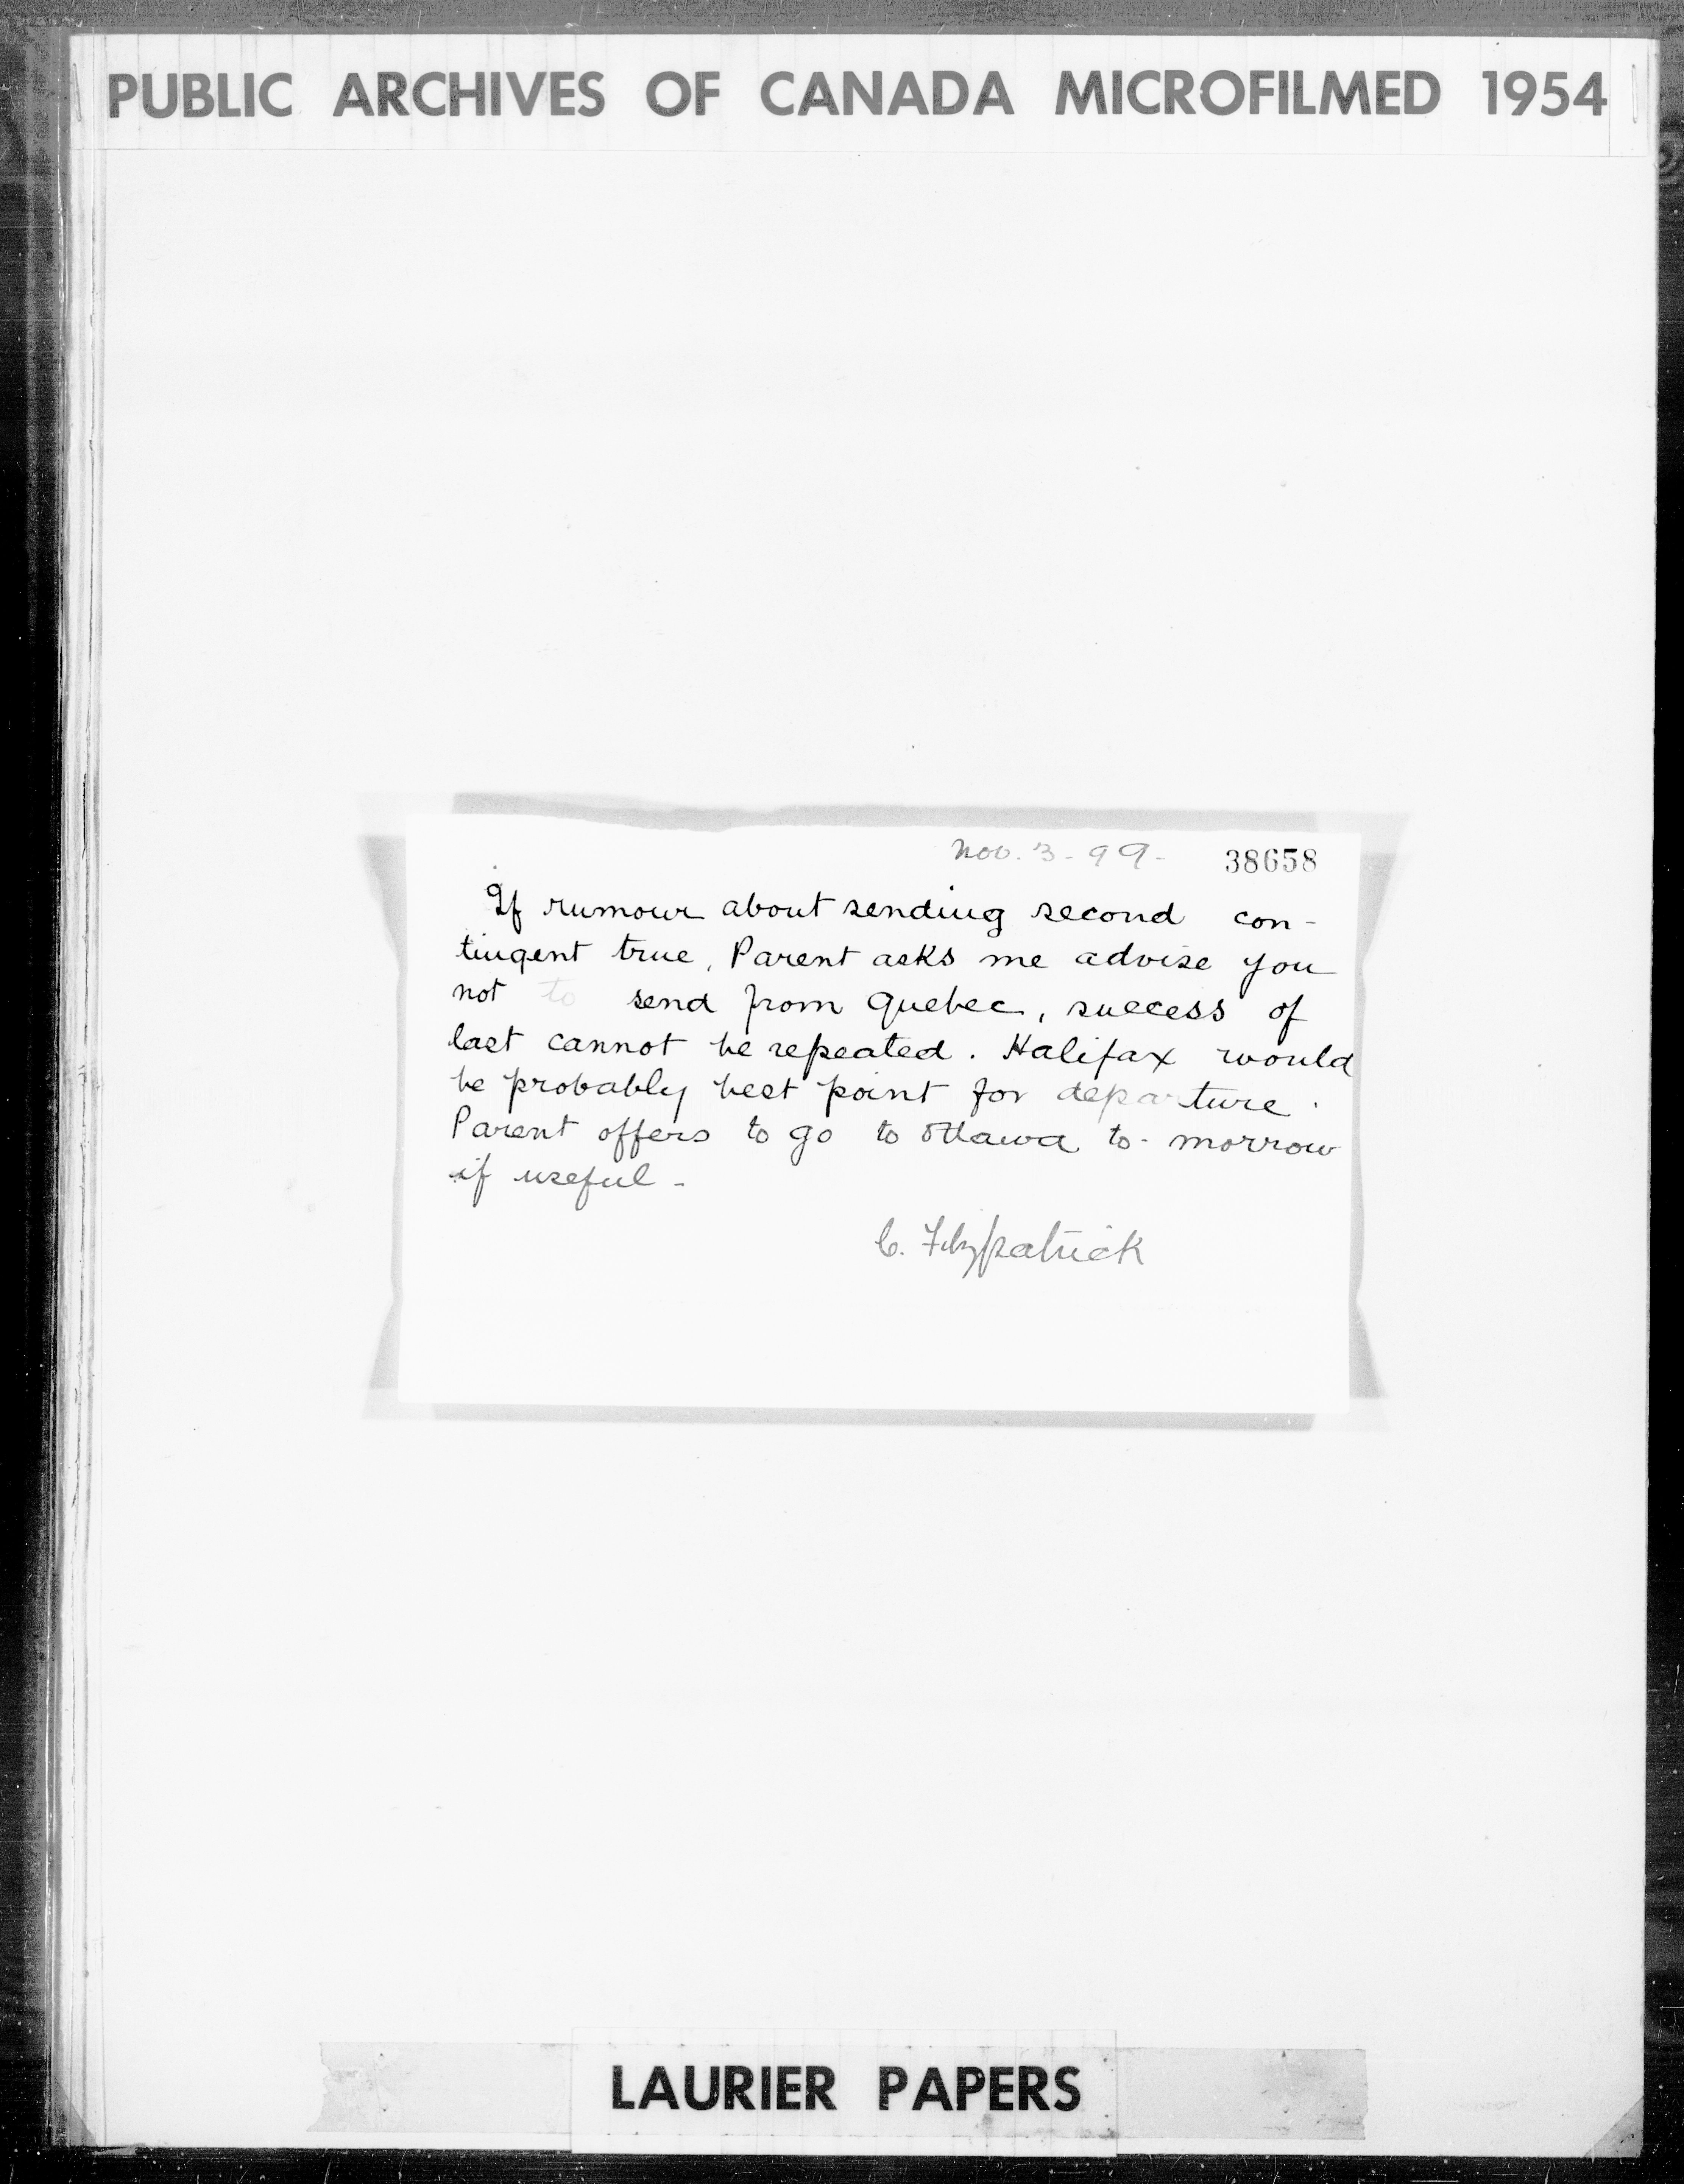 PUBLIC ARCHIVES OF CANADA MICROFILMED 1954
Nov. 3 - 99 - 38658
If rumour about sending second con-
tingent true, Parent asks me advise you
not to send from Quebec, success of
last cannot be repeated. Halifax would
be probably best point for departure.
Parent offers to go to Ottawa to-morrow
if useful -
C. Fitzpatrick
LAURIER PAPERS